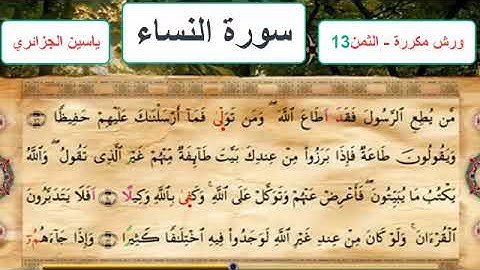 ورش مكررة - الثمن13
سورة النساء
ياسين الجزائري
مَّن يُطِعِ الرَّسُولَ فَقَدَ اَطَاعَ اَللَّهَ وَمَن تَوَلّٰى فَمَا أَرْسَلْنَٰكَ عَلَيْهِمْ حَفِيظًا
وَيَقُولُونَ طَاعَةٌ فَإِذَا بَرَزُوا مِنْ عِندِكَ بَيَّتَ طَآئِفَةٌ مِّنْهُمْ غَيْرَ اَلَّذِى تَقُولُ وَاللَّهُ
يَكْتُبُ مَا يُبَيِّتُونَ فَأَعْرِضْ عَنْهُمْ وَتَوَكَّلْ عَلَى اَللَّهِ وَكَفٰى بِاللَّهِ وَكِيلًا اَفَلَا يَتَدَبَّرُونَ
اَلْقُرْءَانَ وَلَوْ كَانَ مِنْ عِندِ غَيْرِ اِللَّهِ لَوَجَدُوا فِيهِ اِخْتِلَٰفًا كَثِيرًا وَإِذَا جَآءَهُمُۥ